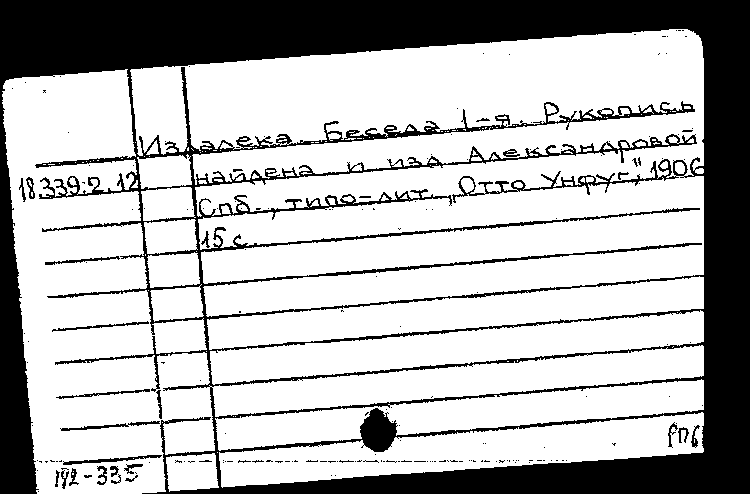 Издалека. Беседа 1-я. Рукопись
18.339.2.12 найдена и изд Александровой.
Спб., типо-лит. „Отто Унфуг", 1906
15 с.
РПб
192-335